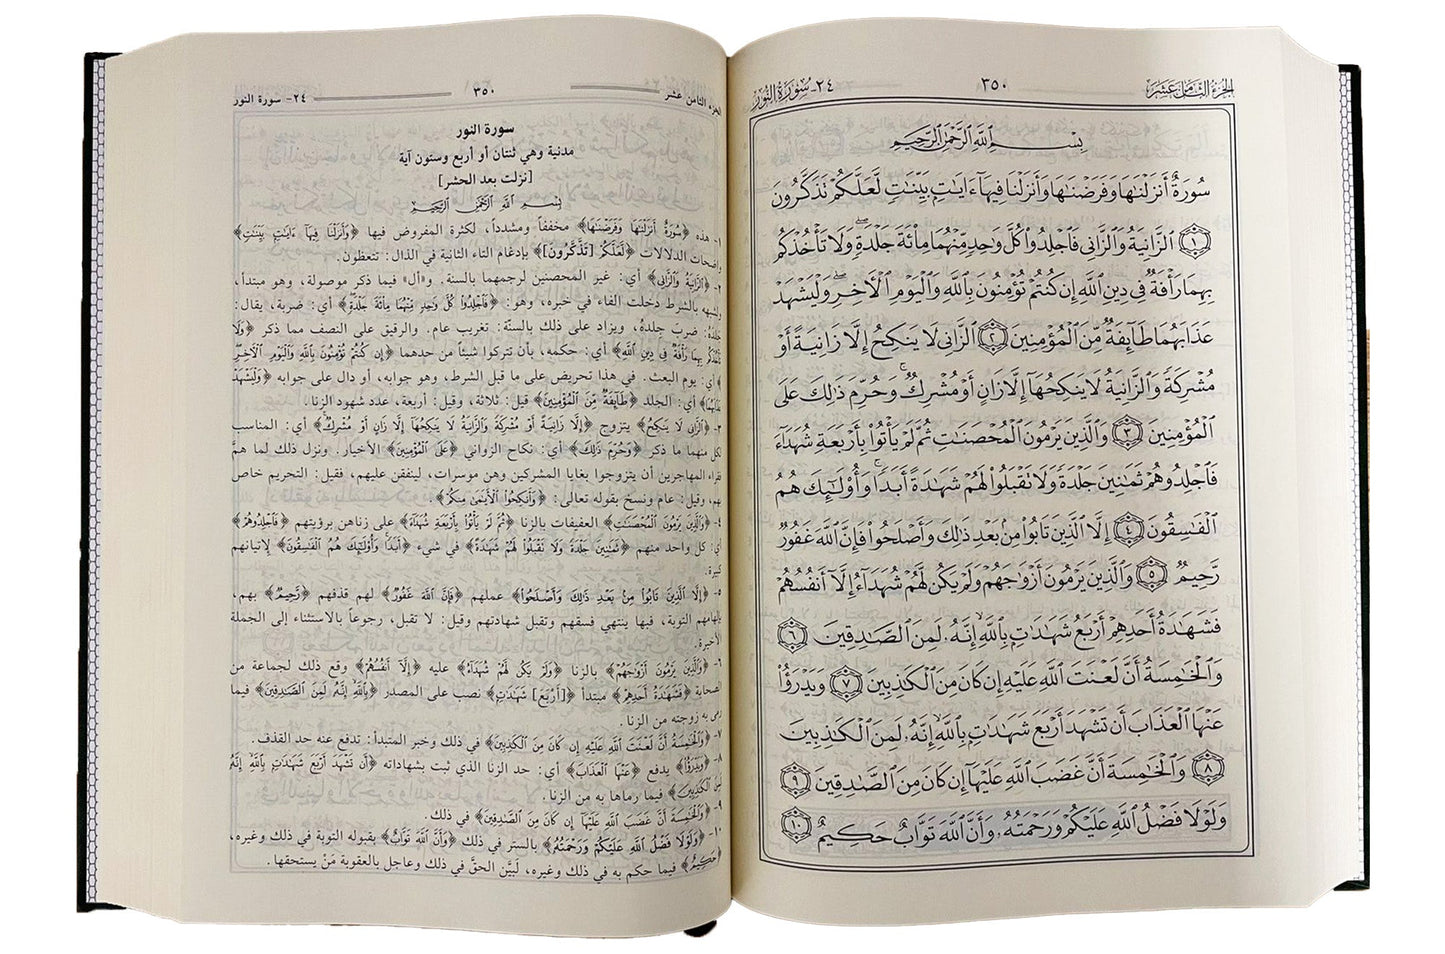 الجزء الثامن عشر
٣٥٠
٢٤- سورة النور
بِسْمِ اللَّهِ الرَّحْمَٰنِ الرَّحِيمِ
سُورَةٌ أَنزَلْنَاهَا وَفَرَضْنَاهَا وَأَنزَلْنَا فِيهَا ءَايَاتٍ بَيِّنَاتٍ لَّعَلَّكُمْ تَذَكَّرُونَ
١ الزَّانِيَةُ وَالزَّانِي فَاجْلِدُوا كُلَّ وَاحِدٍ مِّنْهُمَا مِائَةَ جَلْدَةٍ وَلَا تَأْخُذْكُم
بِهِمَا رَأْفَةٌ فِي دِينِ اللَّهِ إِن كُنتُمْ تُؤْمِنُونَ بِاللَّهِ وَالْيَوْمِ الْآخِرِ وَلْيَشْهَدْ
عَذَابَهُمَا طَائِفَةٌ مِّنَ الْمُؤْمِنِينَ ٢ الزَّانِي لَا يَنكِحُ إِلَّا زَانِيَةً أَوْ
مُشْرِكَةً وَالزَّانِيَةُ لَا يَنكِحُهَا إِلَّا زَانٍ أَوْ مُشْرِكٌ وَحُرِّمَ ذَٰلِكَ عَلَى
الْمُؤْمِنِينَ ٣ وَالَّذِينَ يَرْمُونَ الْمُحْصَنَاتِ ثُمَّ لَمْ يَأْتُوا بِأَرْبَعَةِ شُهَدَاءَ
فَاجْلِدُوهُمْ ثَمَانِينَ جَلْدَةً وَلَا تَقْبَلُوا لَهُمْ شَهَادَةً أَبَدًا وَأُولَٰئِكَ هُمُ
الْفَاسِقُونَ ٤ إِلَّا الَّذِينَ تَابُوا مِنْ بَعْدِ ذَٰلِكَ وَأَصْلَحُوا فَإِنَّ اللَّهَ غَفُورٌ
رَّحِيمٌ ٥ وَالَّذِينَ يَرْمُونَ أَزْوَاجَهُمْ وَلَمْ يَكُن لَّهُمْ شُهَدَاءُ إِلَّا أَنفُسُهُمْ
فَشَهَادَةُ أَحَدِهِمْ أَرْبَعُ شَهَادَاتٍ بِاللَّهِ إِنَّهُ لَمِنَ الصَّادِقِينَ ٦
وَالْخَامِسَةُ أَنَّ لَعْنَتَ اللَّهِ عَلَيْهِ إِن كَانَ مِنَ الْكَاذِبِينَ ٧ وَيَدْرَؤُا
عَنْهَا الْعَذَابَ أَن تَشْهَدَ أَرْبَعَ شَهَادَاتٍ بِاللَّهِ إِنَّهُ لَمِنَ الْكَاذِبِينَ
٨ وَالْخَامِسَةَ أَنَّ غَضَبَ اللَّهِ عَلَيْهَا إِن كَانَ مِنَ الصَّادِقِينَ ٩
وَلَوْلَا فَضْلُ اللَّهِ عَلَيْكُمْ وَرَحْمَتُهُ وَأَنَّ اللَّهَ تَوَّابٌ حَكِيمٌ ١٠
الجزء الثامن عشر
٣٥٠
٢٤- سورة النور
سورة النور
مدنية وهي ثنتان أو أربع وستون آية
[نزلت بعد الحشر]
بسم الله الرحمن الرحيم
١- هذه ﴿سُورَةٌ أَنزَلْنَاهَا وَفَرَضْنَاهَا﴾ مخففاً ومشدداً، لكثرة المفروض فيها ﴿وَأَنزَلْنَا فِيهَا ءَايَاتٍ بَيِّنَاتٍ﴾
واضحات الدلالات ﴿لَّعَلَّكُمْ [تَذَّكَّرُونَ]﴾ بإدغام التاء الثانية في الذال: تتعظون.
٢- ﴿الزَّانِيَةُ وَالزَّانِي﴾ أي: غير المحصنين لرجمهما بالسنة. و«أل» فيما ذكر موصولة، وهو مبتدأ،
ولشبهه بالشرط دخلت الفاء في خبره، وهو: ﴿فَاجْلِدُوا كُلَّ وَاحِدٍ مِّنْهُمَا مِائَةَ جَلْدَةٍ﴾ أي: ضربة، يقال:
جَلَدَهُ: ضربَ جِلدَهُ، ويزاد على ذلك بالسنَّة: تغريب عام. والرقيق على النصف مما ذكر ﴿وَلَا
تَأْخُذْكُم بِهِمَا رَأْفَةٌ فِي دِينِ اللَّهِ﴾ أي: حكمه، بأن تتركوا شيئاً من حدهما ﴿إِن كُنتُمْ تُؤْمِنُونَ بِاللَّهِ وَالْيَوْمِ الْآخِرِ﴾
أي: يوم البعث. في هذا تحريض على ما قبل الشرط، وهو جوابه، أو دال على جوابه ﴿وَلْيَشْهَدْ
عَذَابَهُمَا﴾ أي: الجلد ﴿طَائِفَةٌ مِّنَ الْمُؤْمِنِينَ﴾ قيل: ثلاثة، وقيل: أربعة، عدد شهود الزنا.
٣- ﴿الزَّانِي لَا يَنكِحُ﴾ يتزوج ﴿إِلَّا زَانِيَةً أَوْ مُشْرِكَةً وَالزَّانِيَةُ لَا يَنكِحُهَا إِلَّا زَانٍ أَوْ مُشْرِكٌ﴾ أي: المناسب
لكل منهما ما ذكر ﴿وَحُرِّمَ ذَٰلِكَ﴾ أي: نكاح الزواني ﴿عَلَى الْمُؤْمِنِينَ﴾ الأخيار. ونزل ذلك لما همَّ
فقراء المهاجرين أن يتزوجوا بغايا المشركين وهن موسرات، لينفقن عليهم، فقيل: التحريم خاص
بهم، وقيل: عام ونسخ بقوله تعالى: ﴿وَأَنكِحُوا الْأَيَامَىٰ مِنكُمْ﴾
٤- ﴿وَالَّذِينَ يَرْمُونَ الْمُحْصَنَاتِ﴾ العفيفات بالزنا ﴿ثُمَّ لَمْ يَأْتُوا بِأَرْبَعَةِ شُهَدَاءَ﴾ على زناهن برؤيتهم ﴿فَاجْلِدُوهُمْ﴾
أي: كل واحد منهم ﴿ثَمَانِينَ جَلْدَةً وَلَا تَقْبَلُوا لَهُمْ شَهَادَةً﴾ في شيء ﴿أَبَدًا وَأُولَٰئِكَ هُمُ الْفَاسِقُونَ﴾ لإتيانهم
كبيرة.
٥- ﴿إِلَّا الَّذِينَ تَابُوا مِنْ بَعْدِ ذَٰلِكَ وَأَصْلَحُوا﴾ عملهم ﴿فَإِنَّ اللَّهَ غَفُورٌ﴾ لهم قذفهم ﴿رَّحِيمٌ﴾ بهم،
بإلهامهم التوبة، فبها ينتهي فسقهم وتقبل شهادتهم وقيل: لا تقبل، رجوعاً بالاستثناء إلى الجملة
الأخيرة.
٦- ﴿وَالَّذِينَ يَرْمُونَ أَزْوَاجَهُمْ﴾ بالزنا ﴿وَلَمْ يَكُن لَّهُمْ شُهَدَاءُ﴾ عليه ﴿إِلَّا أَنفُسُهُمْ﴾ وقع ذلك لجماعة من
الصحابة ﴿فَشَهَادَةُ أَحَدِهِمْ﴾ مبتدأ ﴿[أَرْبَعَ] شَهَادَاتٍ﴾ نصب على المصدر ﴿بِاللَّهِ إِنَّهُ لَمِنَ الصَّادِقِينَ﴾ فيما
رمى به زوجته من الزنا.
٧- ﴿وَالْخَامِسَةُ أَنَّ لَعْنَتَ اللَّهِ عَلَيْهِ إِن كَانَ مِنَ الْكَاذِبِينَ﴾ في ذلك وخبر المبتدأ: تدفع عنه حد القذف.
٨- ﴿وَيَدْرَؤُا﴾ يدفع ﴿عَنْهَا الْعَذَابَ﴾ أي: حد الزنا الذي ثبت بشهاداته ﴿أَن تَشْهَدَ أَرْبَعَ شَهَادَاتٍ بِاللَّهِ إِنَّهُ
لَمِنَ الْكَاذِبِينَ﴾ فيما رماها به من الزنا.
٩- ﴿وَالْخَامِسَةَ أَنَّ غَضَبَ اللَّهِ عَلَيْهَا إِن كَانَ مِنَ الصَّادِقِينَ﴾ في ذلك.
١٠- ﴿وَلَوْلَا فَضْلُ اللَّهِ عَلَيْكُمْ وَرَحْمَتُهُ﴾ بالستر في ذلك ﴿وَأَنَّ اللَّهَ تَوَّابٌ﴾ بقبوله التوبة في ذلك وغيره،
﴿حَكِيمٌ﴾ فيما حكم به في ذلك وغيره، لَبيَّن الحقَّ في ذلك وعاجل بالعقوبة مَنْ يستحقها.